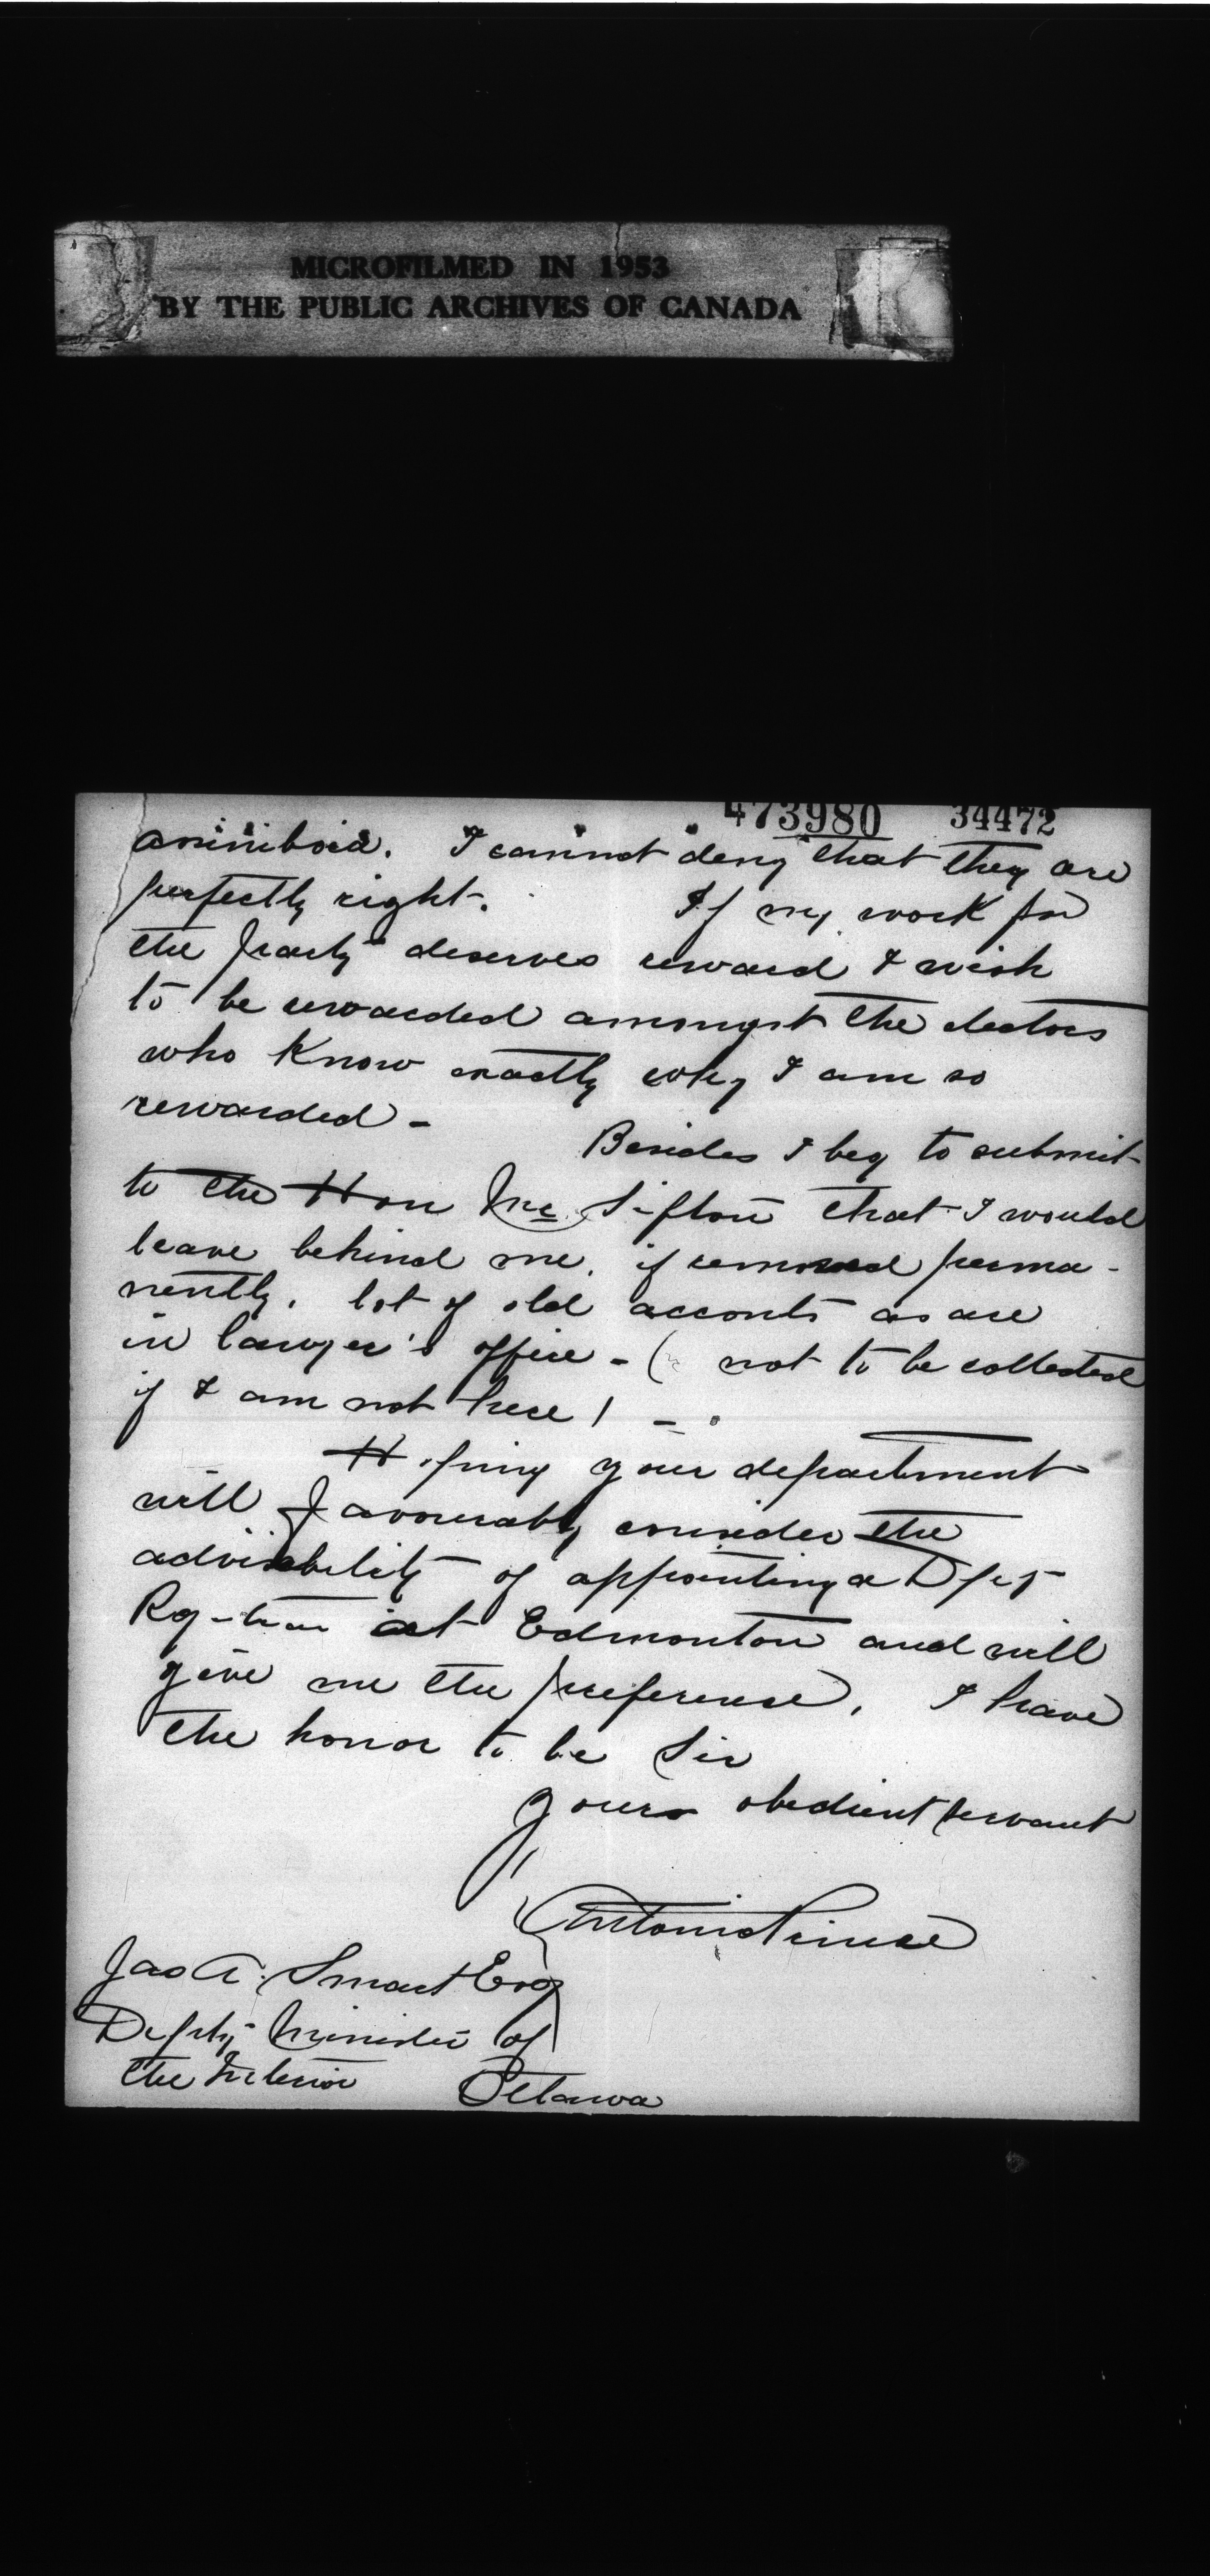 MICROFILMED IN 1953
BY THE PUBLIC ARCHIVES OF CANADA
473980 34472
assiniboia. I cannot deny that they are
perfectly right. If my work for
the party deserves reward I wish
to be rewarded amongst the electors
who know exactly why I am so
rewarded -
Besides I beg to submit
to the Hon Mr. Sifton that I would
leave behind me, if removed perma-
nently, lot of old acconts as are
in lawyer's office - ( not to be collected
if I am not here ) -
Hoping your department
will favourably consider the
advisability of appointing a Dpty
Rg-trar at Edmonton and will
give me the preference, I have
the honor to be Sir
yours obedient servant
Antonio Prince
Jas A. Smart Esq
Depty Minister of
the Interior Ottawa